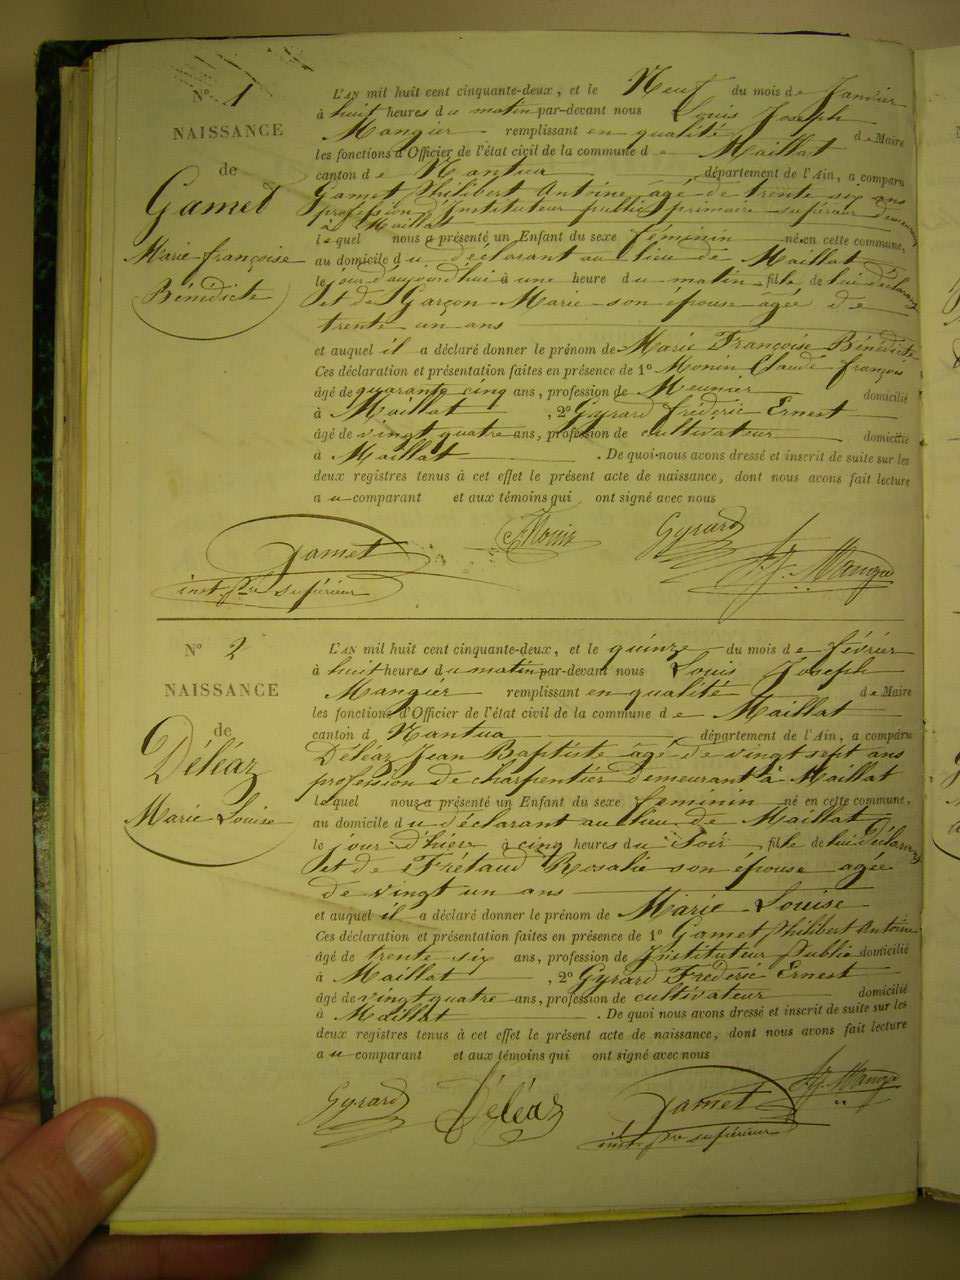 N° 1
NAISSANCE
de
Gamet
Marie françoise
Bénédicte
L'AN mil huit cent cinquante-deux, et le Neuf du mois de Janvier
à huit heures du matin par-devant nous Louis Joseph
Mangier remplissant en qualité de Maire
les fonctions d'Officier de l'état civil de la commune de Maillat
canton de Nantua, département de l'Ain, a comparu
Gamet Philibert Antoine âgé de trente six ans
profession d'Instituteur public primaire supérieur demeurant
à Maillat
lequel nous a présenté un Enfant du sexe féminin né en cette commune,
au domicile du déclarant au lieu de Maillat
le jour d'aujourd'hui à une heure du matin, fille de lui déclarant
et de Garçon Marie son épouse agée de
trente un ans
et auquel il a déclaré donner le prénom de Marie Françoise Bénédicte
Ces déclaration et présentation faites en présence de 1° Monin Claude françois
âgé de quarante cinq ans, profession de Meunier domicilié
à Maillat, 2° Gyrard fréderic Ernest
âgé de vingt quatre ans, profession de cultivateur domicilié
à Maillat. De quoi nous avons dressé et inscrit de suite sur les
deux registres tenus à cet effet le présent acte de naissance, dont nous avons fait lecture
au comparant et aux témoins qui ont signé avec nous
Gamet
inst. pre supérieur
Monin
Gyrard
N° 2
NAISSANCE
de
Déléaz
Marie Louise
L'AN mil huit cent cinquante-deux, et le quinze du mois de février
à huit heures du matin par-devant nous Louis Joseph
Mangier remplissant en qualité de Maire
les fonctions d'Officier de l'état civil de la commune de Maillat
canton d Nantua, département de l'Ain, a comparu
Déléaz Jean Baptiste âgé de vingt sept ans
profession de charpentier demeurant à Maillat
lequel nous a présenté un Enfant du sexe féminin né en cette commune,
au domicile du déclarant au lieu de Maillat
le jour d'hier à cinq heures du Soir, fille de lui déclarant
et de Frétaud Rosalie son épouse agée
de vingt un ans
et auquel il a déclaré donner le prénom de Marie Louise
Ces déclaration et présentation faites en présence de 1° Gamet Philibert Antoine
âgé de trente six ans, profession de Instituteur Public domicilié
à Maillat, 2° Gyrard Frederic Ernest
âgé de vingt quatre ans, profession de cultivateur domicilié
à Maillat. De quoi nous avons dressé et inscrit de suite sur les
deux registres tenus à cet effet le présent acte de naissance, dont nous avons fait lecture
au comparant et aux témoins qui ont signé avec nous
Gyrard
Déléaz
Gamet
inst. pre supérieur